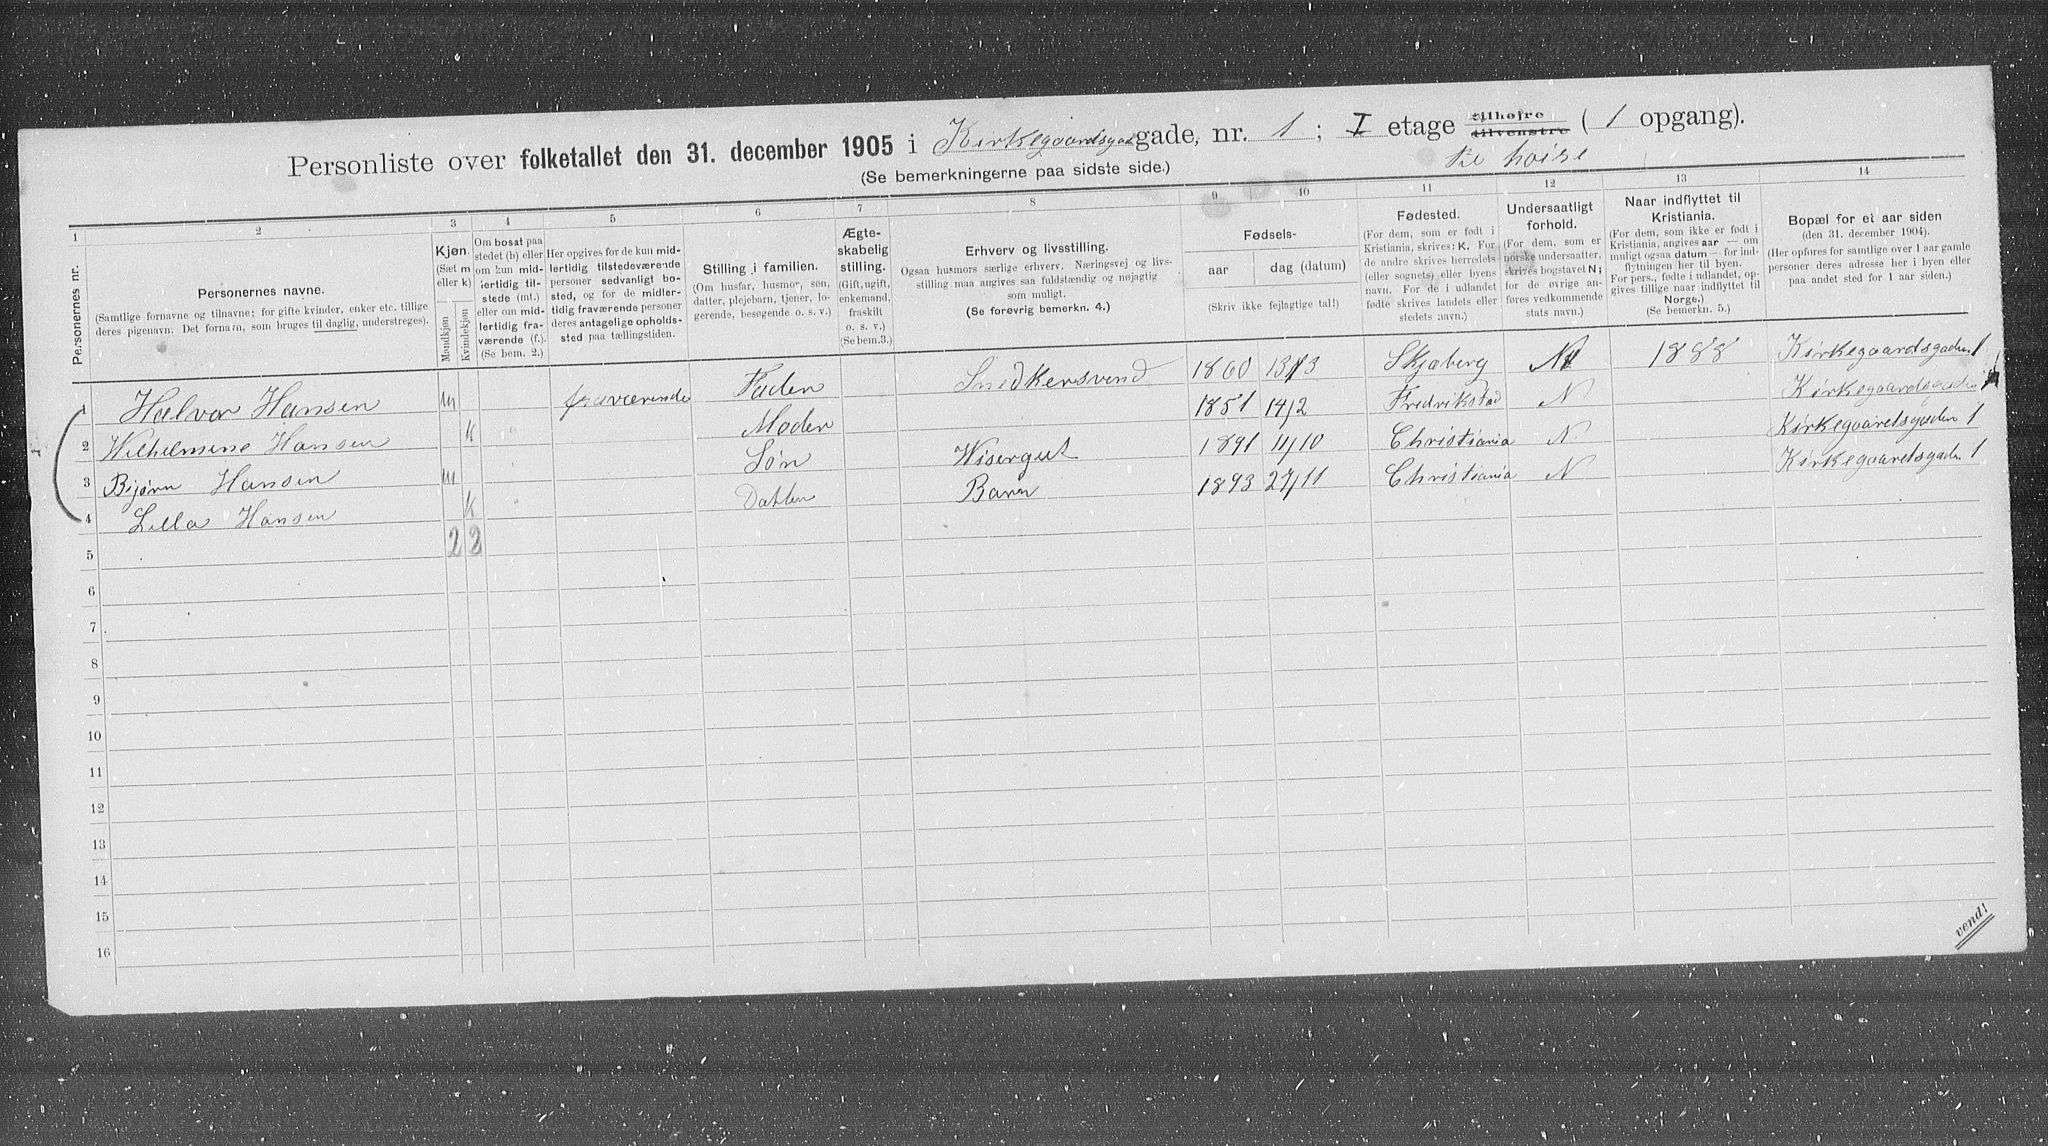 Personliste over folketallet den 31. december 1905 i Kirkegaardsgadgade, nr. 1; I etage tilhøjre tilvenstre (1 opgang).
til høire
(Se bemerkningerne paa sidste side.)
1 2 3 4 5 6 7 8 9 10 11 12 13 14
Personernes nr.
Personernes navne.
(Samtlige fornavne og tilnavne; for gifte kvinder, enker etc. tillige
deres pigenavn. Det fornavn, som bruges til daglig, understreges).
Kjøn.
(Sæt m
eller k)
Mandkjøn
Kvindekjøn
Om bosat paa
stedet (b) eller
om kun mid-
lertidig til-
stede (mt.)
eller om mid-
lertidig fra-
værende (f.).
(Se bem. 2.)
Her opgives for de kun mid-
lertidig tilstedeværende
personer sedvanlig bo-
sted, og for de midler-
tidig fraværende personer
deres antagelige opholds-
sted paa tællingstiden.
Stilling i familien.
(Om husfar, husmor, søn,
datter, plejebarn, tjener, lo-
gerende, besøgende o. s. v.)
Ægte-
skabelig
stilling.
(Gift, ugift,
enkemand,
fraskilt
o. s. v.)
(Se bem.3.)
Erhverv og livsstilling.
Ogsaa husmors særlige erhverv. Næringsvej og livs-
stilling maa angives saa fuldstændig og nøjagtig
som muligt.
(Se forøvrig bemerkn. 4.)
Fødsels-
aar dag (datum)
(Skriv ikke fejlagtige tal!)
Fødested.
(For dem, som er født i
Kristiania, skrives: K. For
de andre skrives herredets
(eller sognets) eller byens
navn. For de i udlandet
fødte skrives landets eller
stedets navn.)
Undersaatligt
forhold.
(For dem, som er
norske undersaatter,
skrives bogstavet N;
for de øvrige an-
føres vedkommende
stats navn.)
Naar indflyttet til
Kristiania.
(For dem, som ikke er født i
Kristiania, angives aar — om
muligt ogsaa datum — for ind-
flytningen her til byen.
For pers., fødte i udlandet, op-
gives tillige naar indflyttet til
Norge.)
(Se bemerkn. 5.)
Bopæl for et aar siden
(den 31. december 1904).
(Her opføres for samtlige over 1 aar gamle
personer deres adresse her i byen eller
paa andet sted for 1 aar siden.)
1 Halvor Hansen m fraværende Fader Snedkersvend 1860 13/3 Skjeberg N 1888 Kirkegaardsgaden 1
2 Wilhelmine Hansen k Moder 1851 14/2 Fredrikstad N Kirkegaardsgaden 1
3 Bjørn Hansen m Søn Wisergut 1891 11/10 Christiania N Kirkegaardsgaden 1
4 Lilla Hansen k Datter Barn 1893 27/11 Christiania N Kirkegaardsgaden 1
5 2 2
6
7
8
9
10
11
12
13
14
15
16
vend!